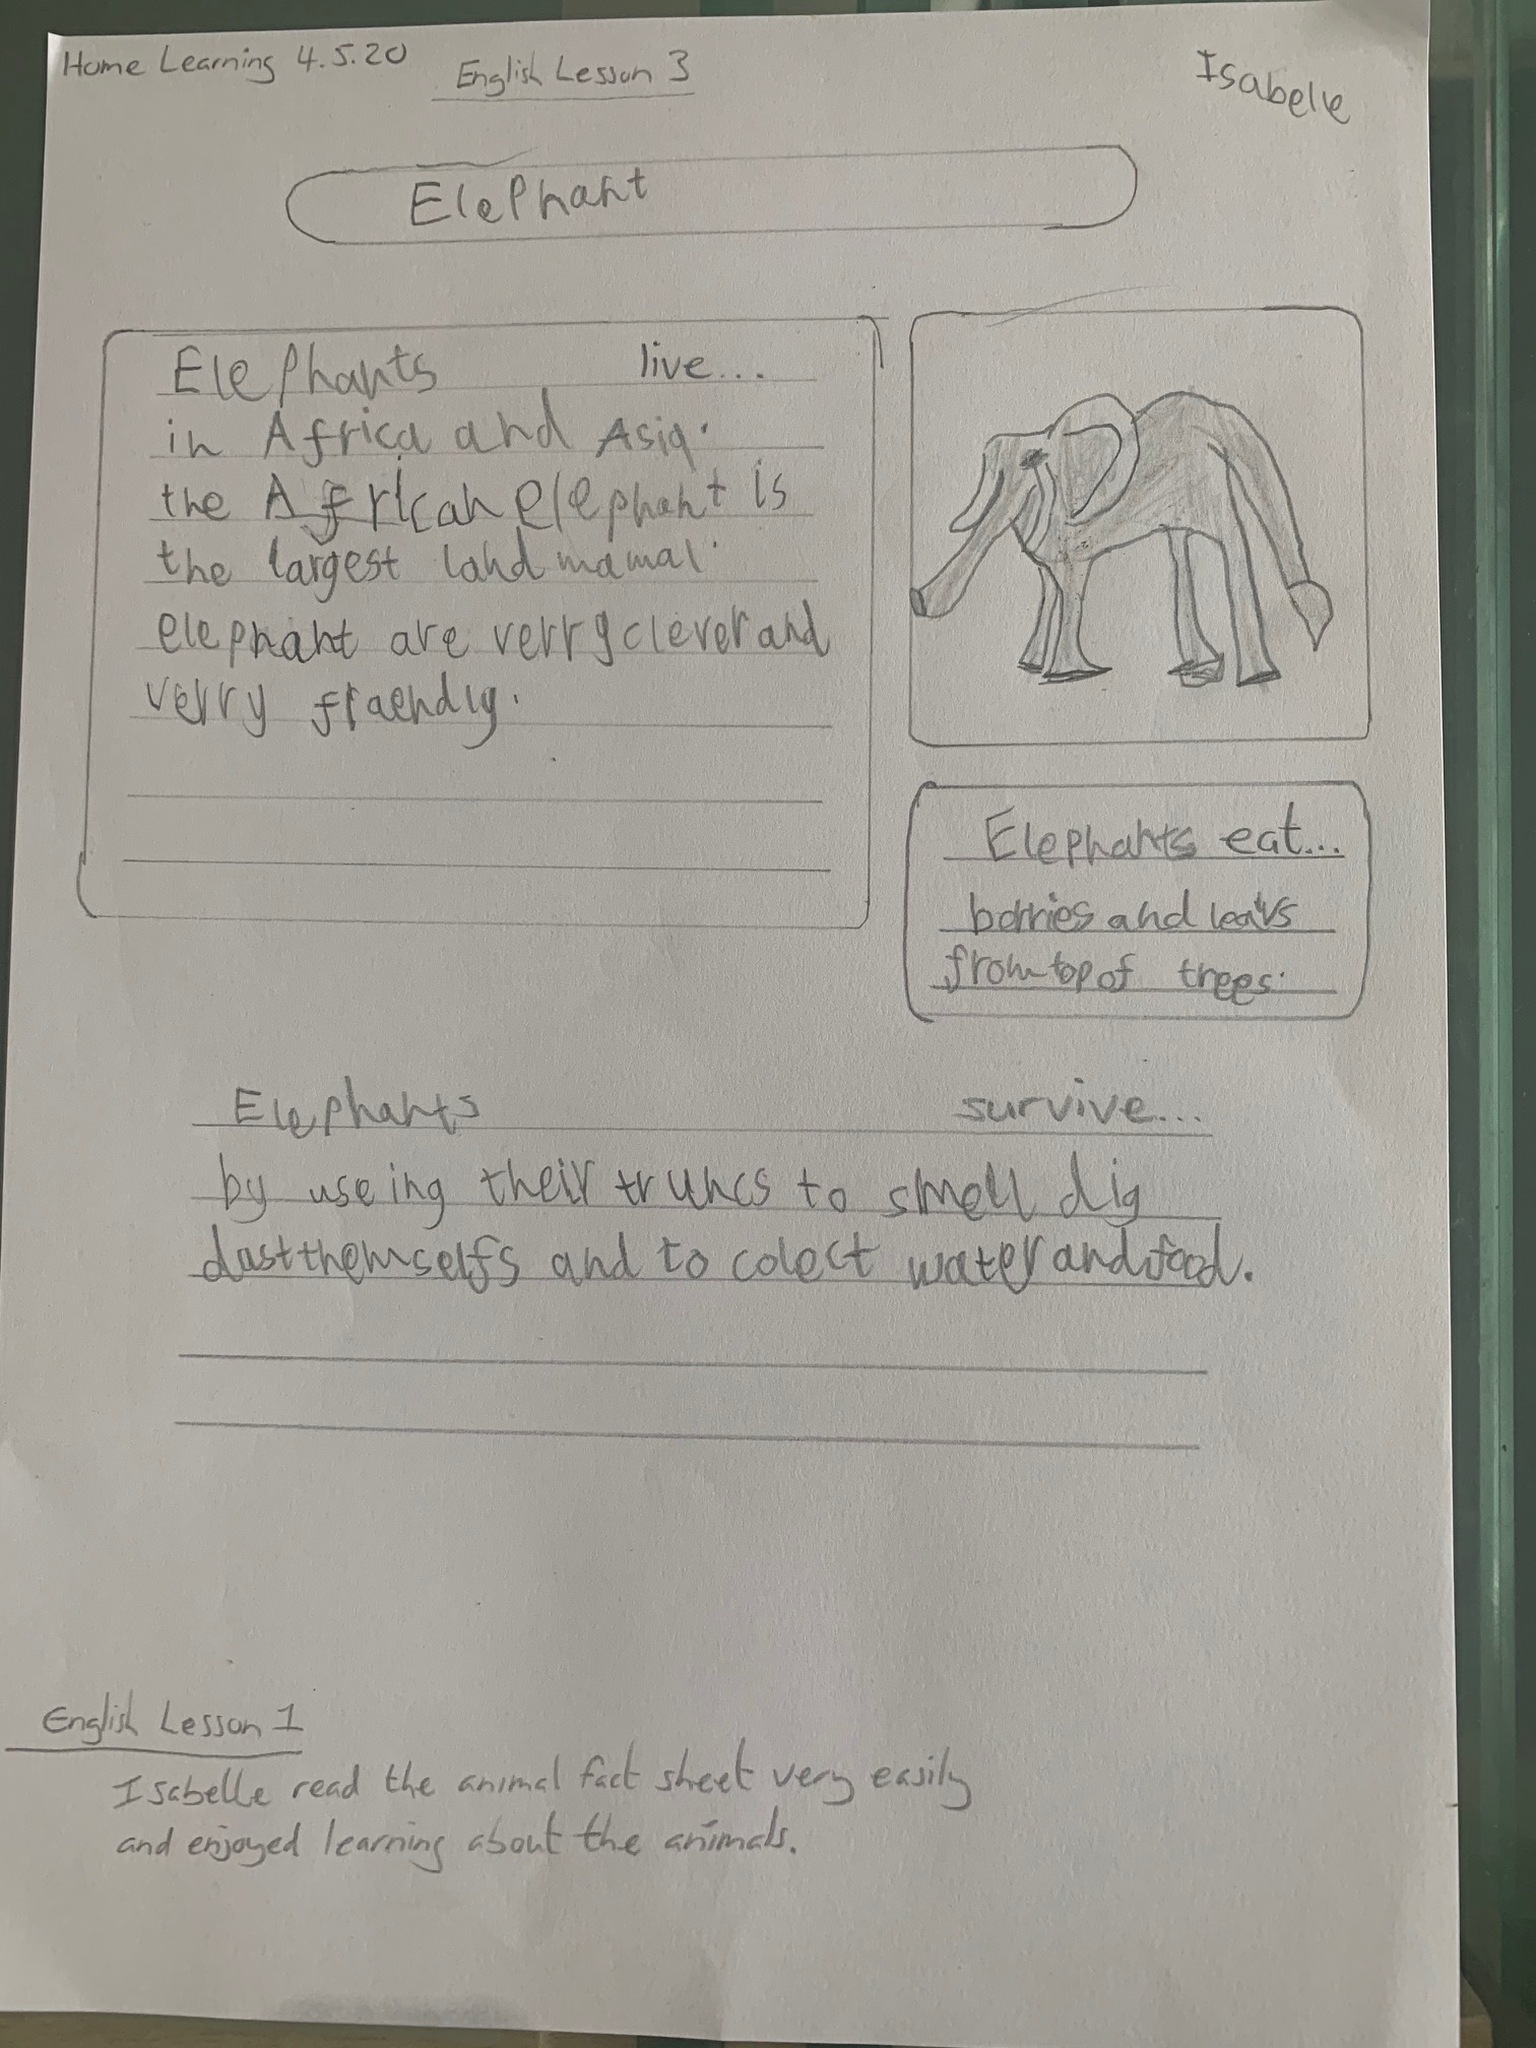 Home Learning 4.5.20
English Lesson 3
Isabelle
Elephant
Elephants live...
in Africa and Asia.
the African elephant is
the largest land mamal.
elephant are verry clever and
verry friaendly.
Elephants eat...
berries and leavs
from top of trees.
Elephants survive...
by useing their truncs to smell dig
dast themselfs and to colect water and food.
English Lesson 1
Isabelle read the animal fact sheet very easily
and enjoyed learning about the animals.